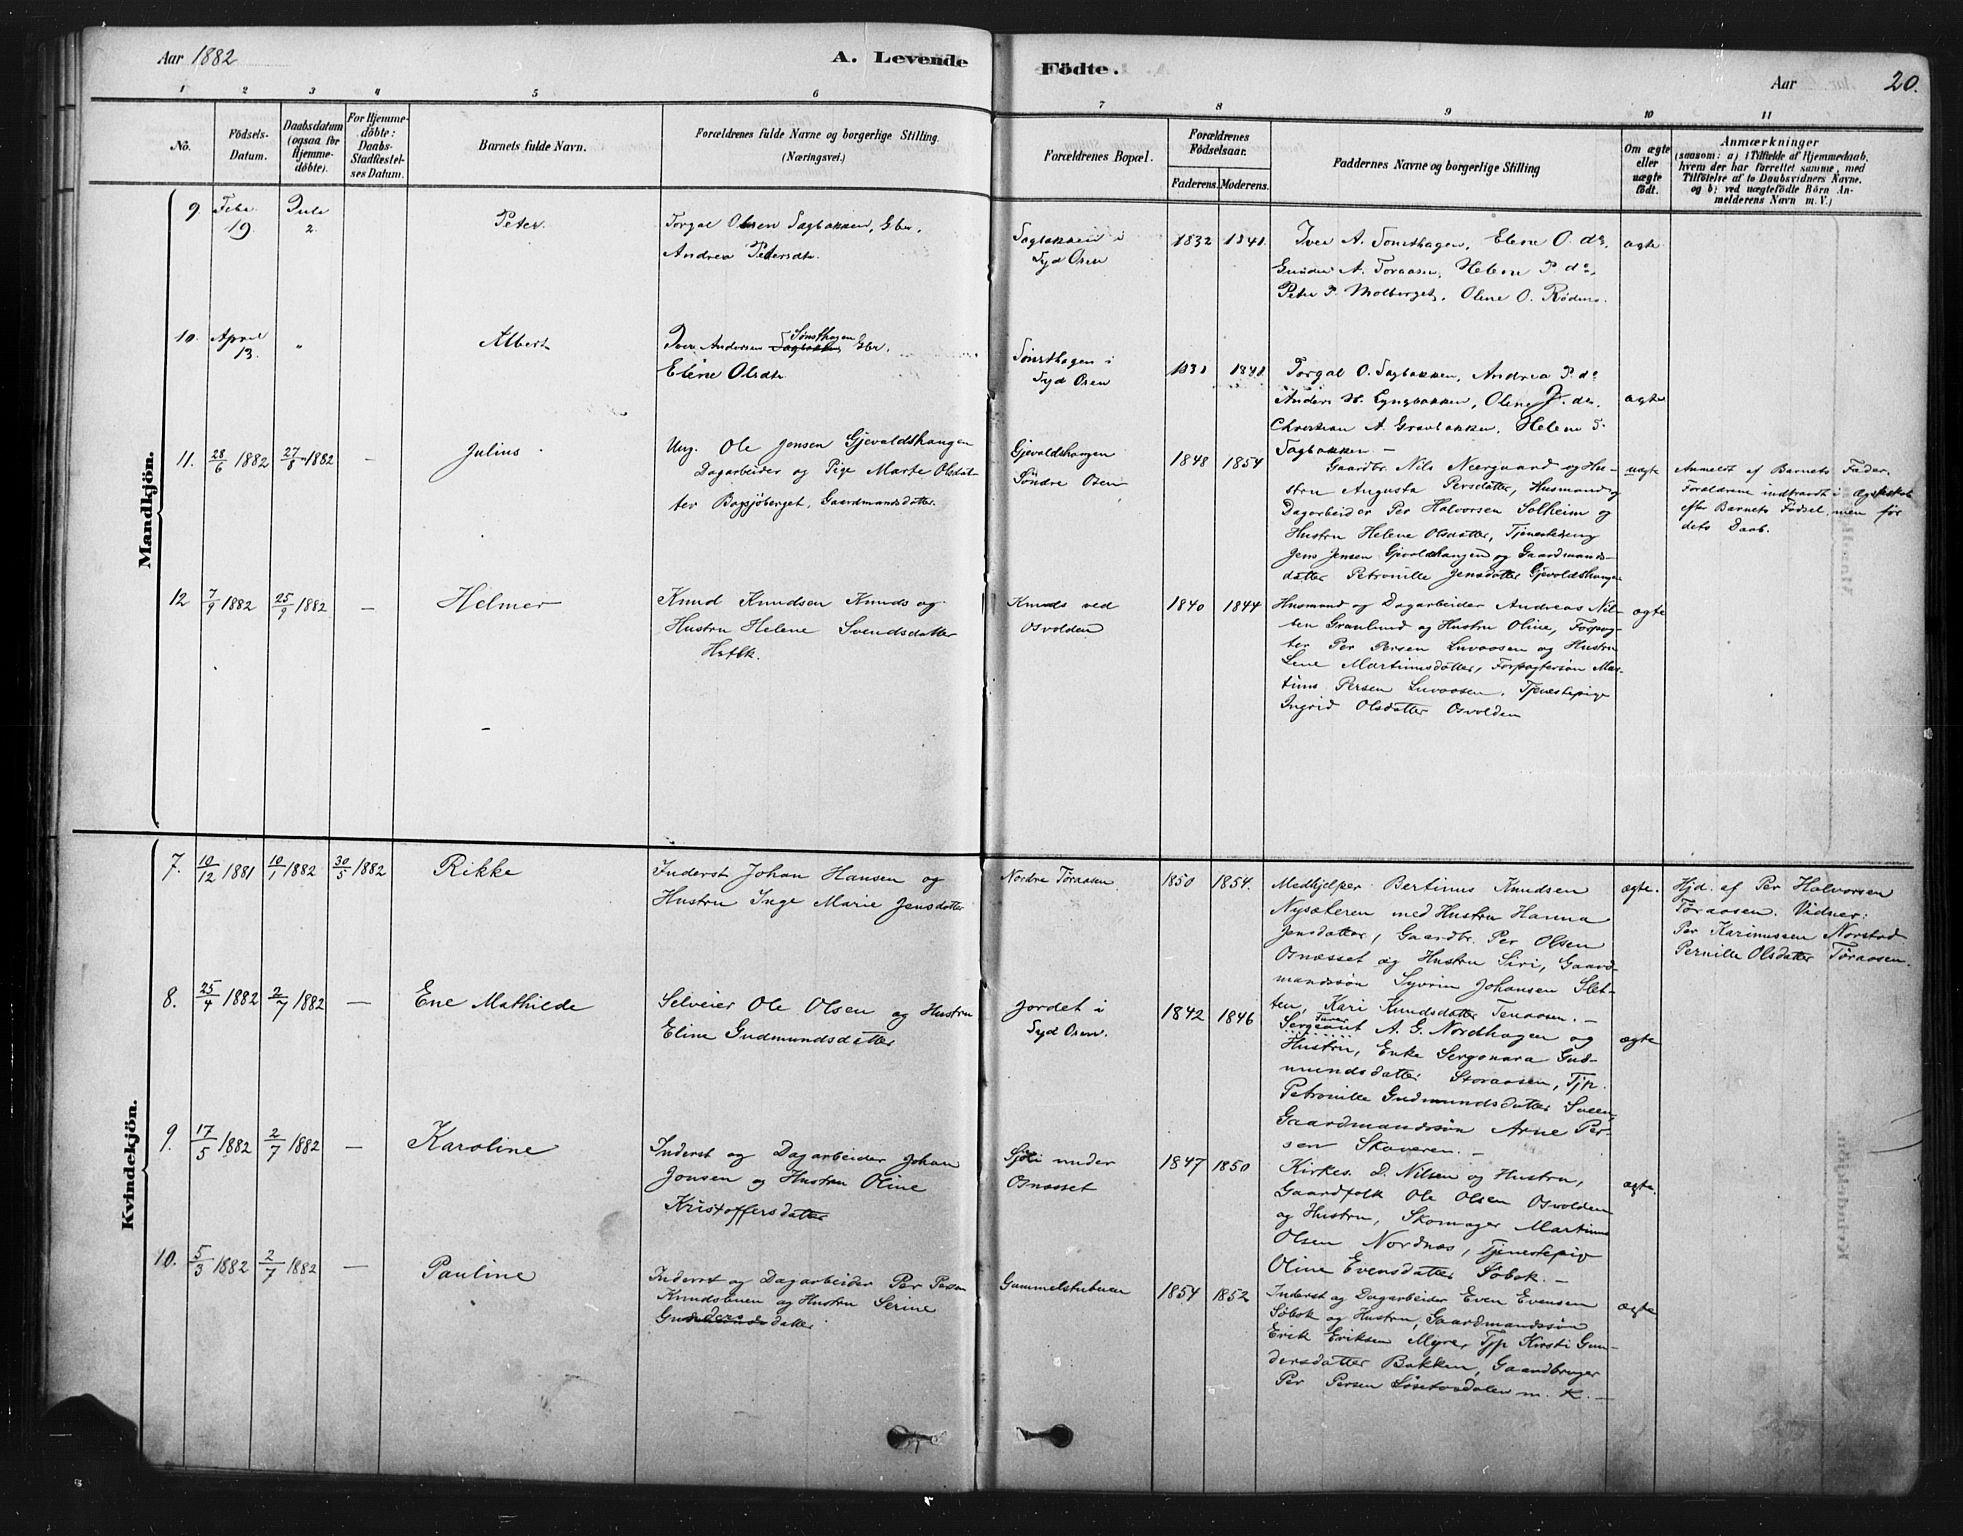 Aar 1882
A. Levende Födte.
Aar
20.
1 2 3 4 5 6 7 8 9 10 11
No.
Födsels-Datum.
Daabsdatum (ogsaa for Hjemmedöbte).
For Hjemmedöbte: Daabs-Stadfæstelses Datum.
Barnets fulde Navn.
Forældrenes fulde Navne og borgerlige Stilling. (Næringsvei.)
Forældrenes Bopæl.
Forældrenes Födselsaar.
Faderens. Moderens.
Faddernes Navne og borgerlige Stilling
Om ægte eller uægte födt.
Anmærkninger
(saasom: a) i Tilfælde af Hjemmedaab, hvem der har forrettet samme, med Tilföielse af to Daabsvidners Navne, og b) ved uægtefödte Börn Anmelderens Navn m. V.)
Mandkjön.
9 Febr. 19. Juli 2.
Peter.
Torgal Olsen Sagbakken, Gbr.
Andrea Pedersdtr.
Sagbakken i
Syd Osen
1832 1841
Iver A. Sonsthagen, Elene O. do,
Gunder A. Toraasen, Helene P. do,
Peter P. Molberget, Olene O. Rødsn.
ægte
10. April 13. "
Albert
Iver Andersen Sønsthagen Gbr.
Elene Olsdtr
Sønsthagen i
Syd Osen
1831 1841
Torgal O. Sagbakken, Andrea P. do
Anders H. Lyngbakken, Olene J. do,
Christian A. Gravbakken, Helene T.
Sagbakken. —
ægte
11. 28/6 1882 27/8 1882 —
Julius
Ung. Ole Jensen Gjevaldshaugen
Dagarbeider og Pige Marte Olsdat-
ter Bagsjøberget, Gaardmandsdatter.
Gjevaldshaugen
Søndre Osen
1848 1854
Gaardbr. Nils Nærgaard og Hu-
stru Augusta Persdatter, Husmand og
Dagarbeider Per Halvorsen Solheim og
Hustru Helene Olsdatter, Tjenestedreng
Jens Jensen Gjevaldshaugen og Gaardmands-
datter Petronille Jensdatter Gjevoldshaugen
uægte
Anmeldt af Barnets Fader.
Forældrene indtraadt i Ægteskab
efter Barnets Fødsel, men før
dets Daab.
12 7/9 1882 25/9 1882 —
Helmer
Knud Knudsen Knuds og
Hustru Helene Svendsdatter
Knuds ved
Osvolden
1840 1844
Husmand og Dagarbeider Andreas Nil-
sen Granlund og Hustru Oline, Forpag-
ter Per Persen Luvaasen og Hustru
Lene Martinusdatter, Forpagtersøn Mar-
tinus Persen Luvaasen, Tjenestepige
Ingrid Olsdatter Osvolden
ægte
Kvindekjön.
7. 10/12 1881 10/1 1882 30/5 1882
Rikke
Inderst Johan Hansen og
Hustru Inge Marie Jensdatter
Nordre Tøraasen
1850 1854.
Medhjelper Bertinus Knudsen
Nysæteren med Hustru Hanna
Jensdatter, Gaardbr. Per Olsen
Osnæsset og Hustru Siri, Gaard-
mandssøn Syvrin Johansen Slet-
ten, Kari Knudsdatter Tenaasen. —
ægte.
Hjd. af Per Halvorsen
Tøraasen. Vidner:
Per Karinussen Norstad
Pernille Olsdatter Tøraasen.
8. 25/4 1882 2/7 1882 —
Ene Mathilde
Selveier Ole Olsen og Hustru
Eline Gudmundsdatter
Jordet i
Syd Osen.
1842 1846
Sergeant A. G. Nordhagen og
Hustru, Enke Sergonara Gud-
mundsdatter Storaasen, Tjp.
Petronille Gudmundsdatter Sveen,
Gaardmandssøn Arne Per-
sen Skaveren. —
ægte
9. 17/5 1882 2/7 1882 —
Karoline
Inderst og Dagarbeider Johan
Jonsen og Hustru Oline
Kristoffersdatter
Sjøli under
Osnæsset
1847 1850
Kirkes. D. Nilsen og Hustru,
Gaardfolk Ole Olsen Osvolden
og Hustru, Skomager Martinus
Olsen Nordnæs, Tjenestepige
Oline Evensdatter Søbok. —
ægte.
10. 5/3 1882 2/7 1882 —
Pauline
Inderst og Dagarbeider Per Persen
Knudsbuen og Hustru Serine
Gundersdatter
Gammelstubuan
1854 1852
Inderst og Dagarbeider Even Evensen
Søbok og Hustru, Gaardmandssøn
Erik Eriksen Myre, Tjp Kirsti Gun-
dersdatter Bakken, Gaardbruger
Per Persen Løsetosdalen m. K. —
ægte